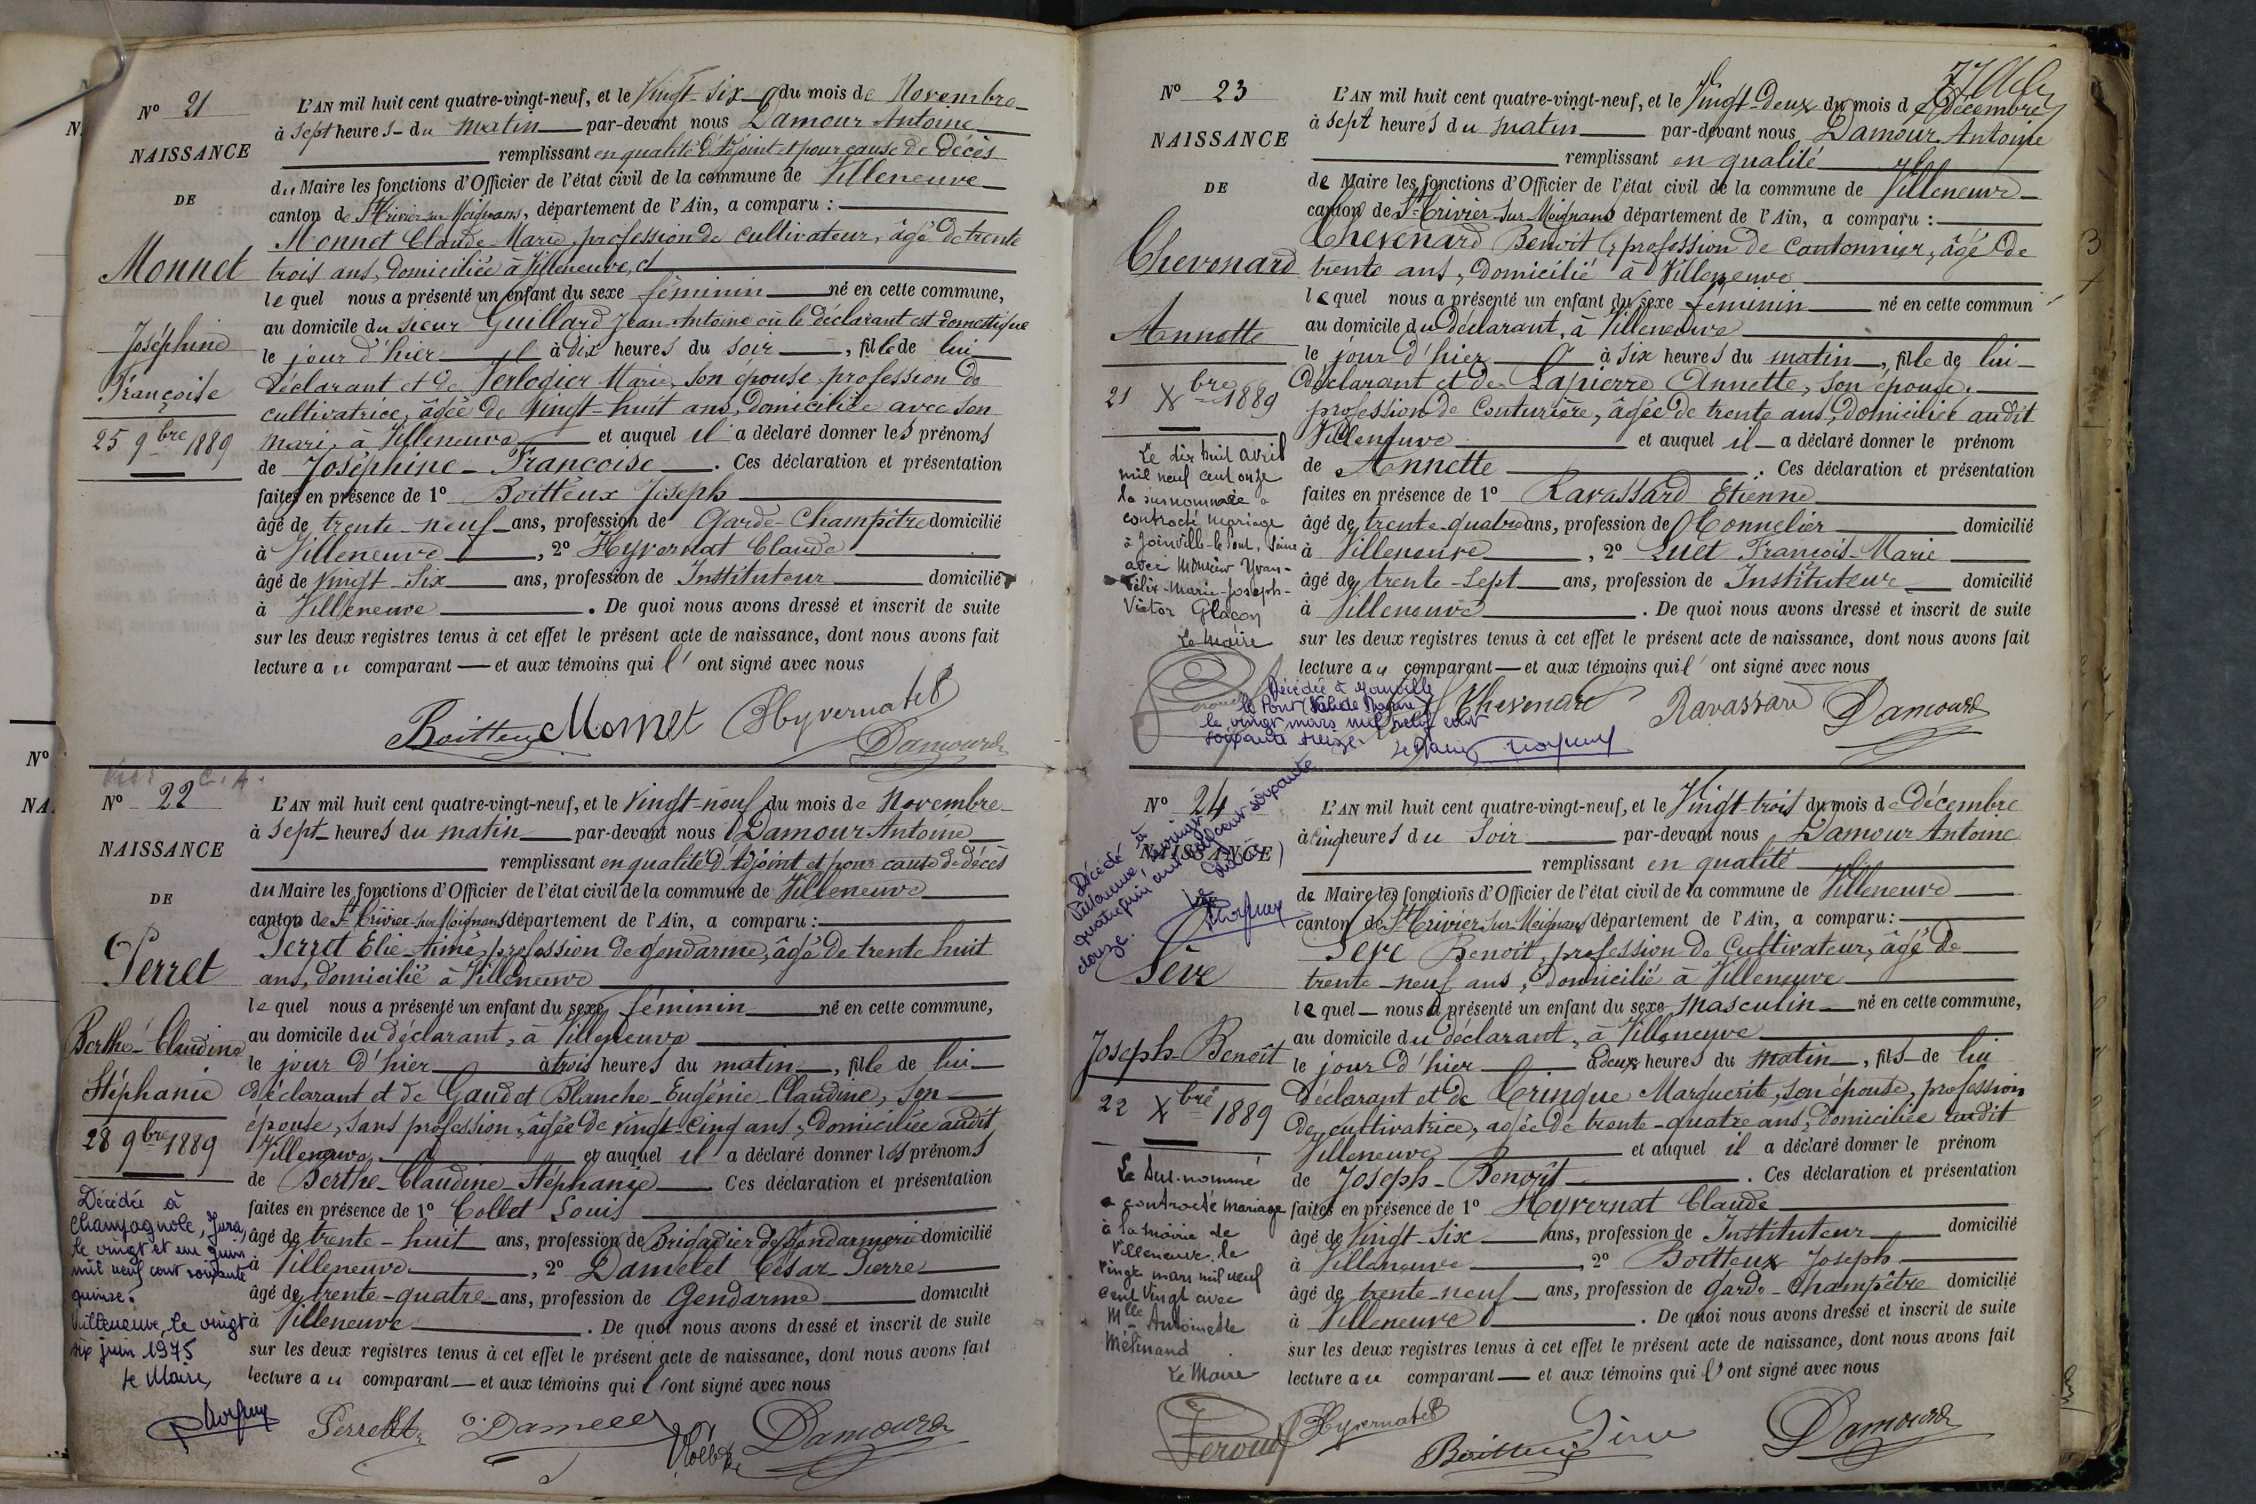 N° 21
NAISSANCE
DE
Monnet
Joséphine
Françoise
25 9bre 1889
L'AN mil huit cent quatre-vingt-neuf, et le Vingt-six du mois de Novembre
à sept heures du matin par-devant nous Damour Antoine
remplissant en qualité d'Adjoint et pour cause de décès
du Maire les fonctions d'Officier de l'état civil de la commune de Villeneuve
canton de St Trivier-sur-Moignans, département de l'Ain, a comparu :
Monnet Claude-Marie, profession de cultivateur, âgé de trente
trois ans, domicilié à Villeneuve,
lequel nous a présenté un enfant du sexe féminin né en cette commune,
au domicile du sieur Guillard Jean-Antoine où le déclarant est domestique
le jour d'hier à dix heures du soir, fille de lui
déclarant et de Verlogier Marie, son épouse, profession de
cultivatrice, âgée de vingt-huit ans, domiciliée avec son
mari, à Villeneuve et auquel il a déclaré donner les prénoms
de Joséphine-Françoise. Ces déclaration et présentation
faites en présence de 1° Boitteux Joseph
âgé de trente-neuf ans, profession de Garde-Champêtre domicilié
à Villeneuve, 2° Hyvernat Claude
âgé de vingt-six ans, profession de Instituteur domicilié
à Villeneuve. De quoi nous avons dressé et inscrit de suite
sur les deux registres tenus à cet effet le présent acte de naissance, dont nous avons fait
lecture au comparant et aux témoins qui l'ont signé avec nous
Boitteux Monnet Hyvernat
Damour
N° 22
NAISSANCE
DE
Perret
Berthe-Claudine
Stéphanie
28 9bre 1889
Décédée à
Champagnole, Jura,
le vingt et un juin
mil neuf cent soixante
quinze.
Villeneuve, le vingt
six juin 1975
Le Maire,
L'AN mil huit cent quatre-vingt-neuf, et le vingt-neuf du mois de Novembre
à sept heures du matin par-devant nous Damour Antoine
remplissant en qualité d'Adjoint et pour cause de décès
du Maire les fonctions d'Officier de l'état civil de la commune de Villeneuve
canton de St Trivier-sur-Moignans département de l'Ain, a comparu :
Perret Elie-Aimé, profession de gendarme, âgé de trente huit
ans, domicilié à Villeneuve
lequel nous a présenté un enfant du sexe féminin né en cette commune,
au domicile du déclarant, à Villeneuve
le jour d'hier à trois heures du matin, fille de lui
déclarant et de Gaudot Blanche-Eugénie-Claudine, son
épouse, sans profession, âgée de vingt-cinq ans, domiciliée audit
Villeneuve et auquel il a déclaré donner les prénoms
de Berthe-Claudine-Stéphanie. Ces déclaration et présentation
faites en présence de 1° Collet Louis
âgé de trente-huit ans, profession de Brigadier de Gendarmerie domicilié
à Villeneuve, 2° Damelet César-Pierre
âgé de trente-quatre ans, profession de Gendarme domicilié
à Villeneuve. De quoi nous avons dressé et inscrit de suite
sur les deux registres tenus à cet effet le présent acte de naissance, dont nous avons fait
lecture au comparant et aux témoins qui l'ont signé avec nous
Perret Damelet Damour
N° 23
NAISSANCE
DE
Chevenard
Annette
21 Xbre 1889
Le dix huit avril
mil neuf cent onze
la susnommée a
contracté mariage
à Joinville-le-Pont, Seine
avec Monsieur Yvan-
Félix-Marie-Joseph-
Victor Glacon
Le Maire
L'AN mil huit cent quatre-vingt-neuf, et le Vingt-deux du mois de Décembre
à sept heures du matin par-devant nous Damour Antoine
remplissant en qualité
de Maire les fonctions d'Officier de l'état civil de la commune de Villeneuve
canton de St-Trivier-sur-Moignans département de l'Ain, a comparu :
Chevenard Benoit, profession de cantonnier, âgé de
trente ans, domicilié à Villeneuve
lequel nous a présenté un enfant du sexe féminin né en cette commun
au domicile du déclarant, à Villeneuve
le jour d'hier à six heures du matin, fille de lui
déclarant et de Lapierre Annette, son épouse,
profession de couturière, âgée de trente ans, domiciliée audit
Villeneuve et auquel il a déclaré donner le prénom
de Annette. Ces déclaration et présentation
faites en présence de 1° Ravassard Etienne
âgé de trente-quatre ans, profession de Tonnelier domicilié
à Villeneuve, 2° Quet François-Marie
âgé de trente-sept ans, profession de Instituteur domicilié
à Villeneuve. De quoi nous avons dressé et inscrit de suite
sur les deux registres tenus à cet effet le présent acte de naissance, dont nous avons fait
lecture au comparant et aux témoins qui l'ont signé avec nous
Décédée à Joinville
le Pont (Val de Marne)
le vingt mars mil neuf cent
soixante treize. Le Maire
Chevenard Ravassard Damour
N° 24
NAISSANCE
Décédé à
Villeneuve, le vingt
quatre juin mil neuf cent soixante
douze.
Sève
Joseph-Benoît
22 Xbre 1889
Le sus-nommé
a contracté mariage
à la mairie de
Villeneuve le
vingt mars mil neuf
cent vingt avec
Mlle Antoinette
Mélinand
Le Maire
L'AN mil huit cent quatre-vingt-neuf, et le Vingt-trois du mois de décembre
à cinq heures du soir par-devant nous Damour Antoine
remplissant en qualité
de Maire les fonctions d'Officier de l'état civil de la commune de Villeneuve
canton de St Trivier-sur-Moignans département de l'Ain, a comparu :
Sève Benoit, profession de cultivateur, âgé de
trente-neuf ans, domicilié à Villeneuve
lequel nous a présenté un enfant du sexe masculin né en cette commune,
au domicile du déclarant, à Villeneuve
le jour d'hier à deux heures du matin, fils de lui
déclarant et de Cringue Marguerite, son épouse, profession
de cultivatrice, agée de trente-quatre ans, domiciliée audit
Villeneuve et auquel il a déclaré donner le prénom
de Joseph-Benoît. Ces déclaration et présentation
faites en présence de 1° Hyvernat Claude
âgé de Vingt-six ans, profession de Instituteur domicilié
à Villeneuve, 2° Boitteux Joseph
âgé de trente-neuf ans, profession de garde-champêtre domicilié
à Villeneuve. De quoi nous avons dressé et inscrit de suite
sur les deux registres tenus à cet effet le présent acte de naissance, dont nous avons fait
lecture au comparant et aux témoins qui l'ont signé avec nous
Hyvernat Boitteux Sève Damour